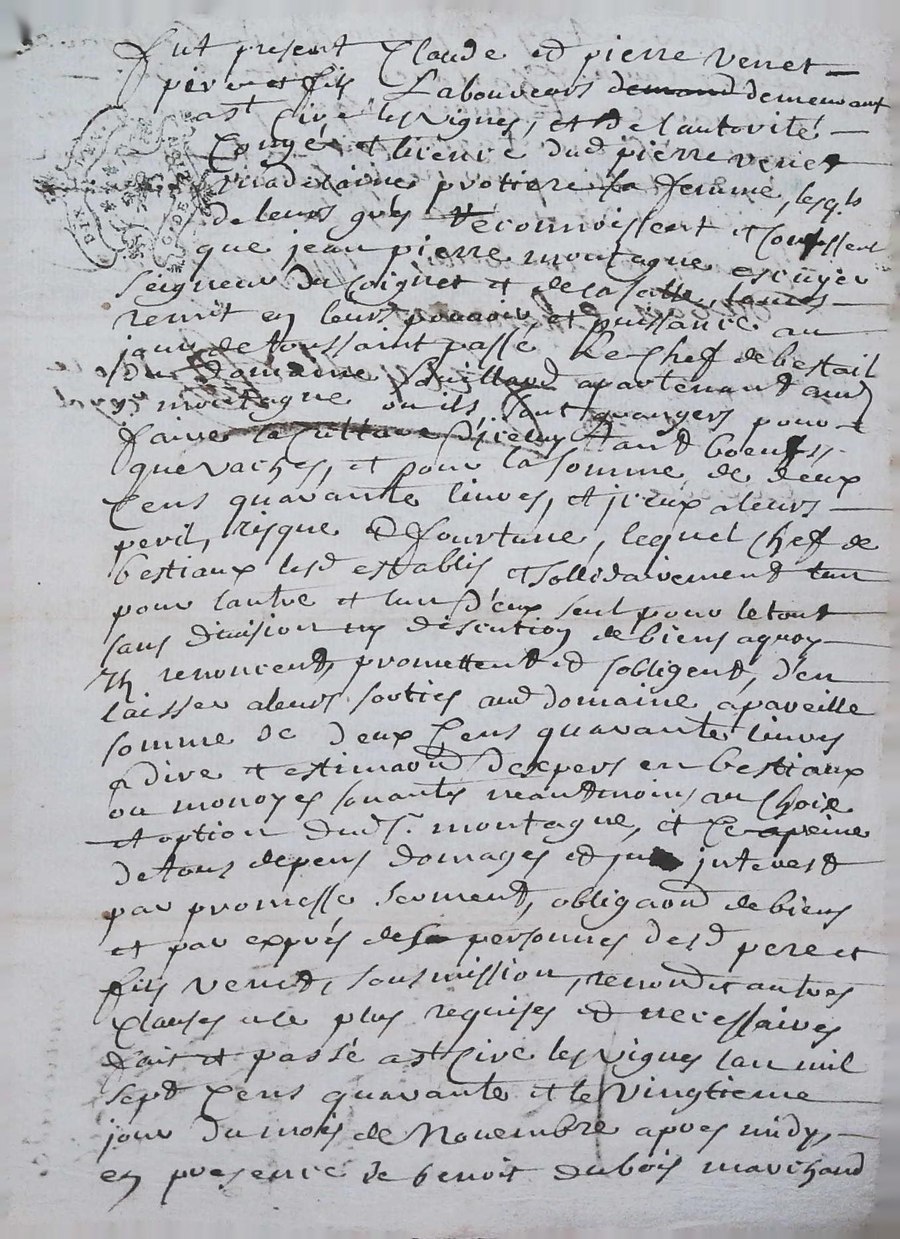 fut present Claude et pierre venet
pere et fils Laboureurs demeurant
a st Ciré les vignes, et de l'autorité
Congé et licence dud pierre venet
protiere sa femme, lesqls
de leurs grés reconnoissent et Confessent
que jean pierre montagne escuyer
seigneur du Poignet et de la salle,
remit en leurs pouvoir, et puissance au
jour de toussaint passé le Chef de bestail
du domaine apartenant aud
sr montagne ou ils sont grangers pour
faire la culture d'iceluy tant boeufs
que vaches, et pour la somme de deux
Cens quarante livres, et jceux a leurs
peril, risque et fourtune, lequel Chef de
bestiaux lesd establis et sollidairement lun
pour lautre et lun d'eux seul pour le tout
sans division ny discution de biens a quoy
Ils renoncent, promettent et sobligent, d'en
laisser a leurs sorties aud domaine, apareille
somme de deux Cens quarante livres
a dire et estimaon d'expers en bestiaux
ou monoyes sonantes neantmoins au Choix
et option dud sr. montagne, et Ce a peine
de tous depens domages et interest
par promesse serment, obligaon de biens
et par exprés de personnes desd pere et
fils venet, sousmission, renon et autres
Clauses a ce plus requises et necessaires
fait et passé a st Ciré les vignes lan mil
sept Cens quarante et le vingtieme
jour du mois de Novembre apres midy,
en presence de benoit dubois marchand